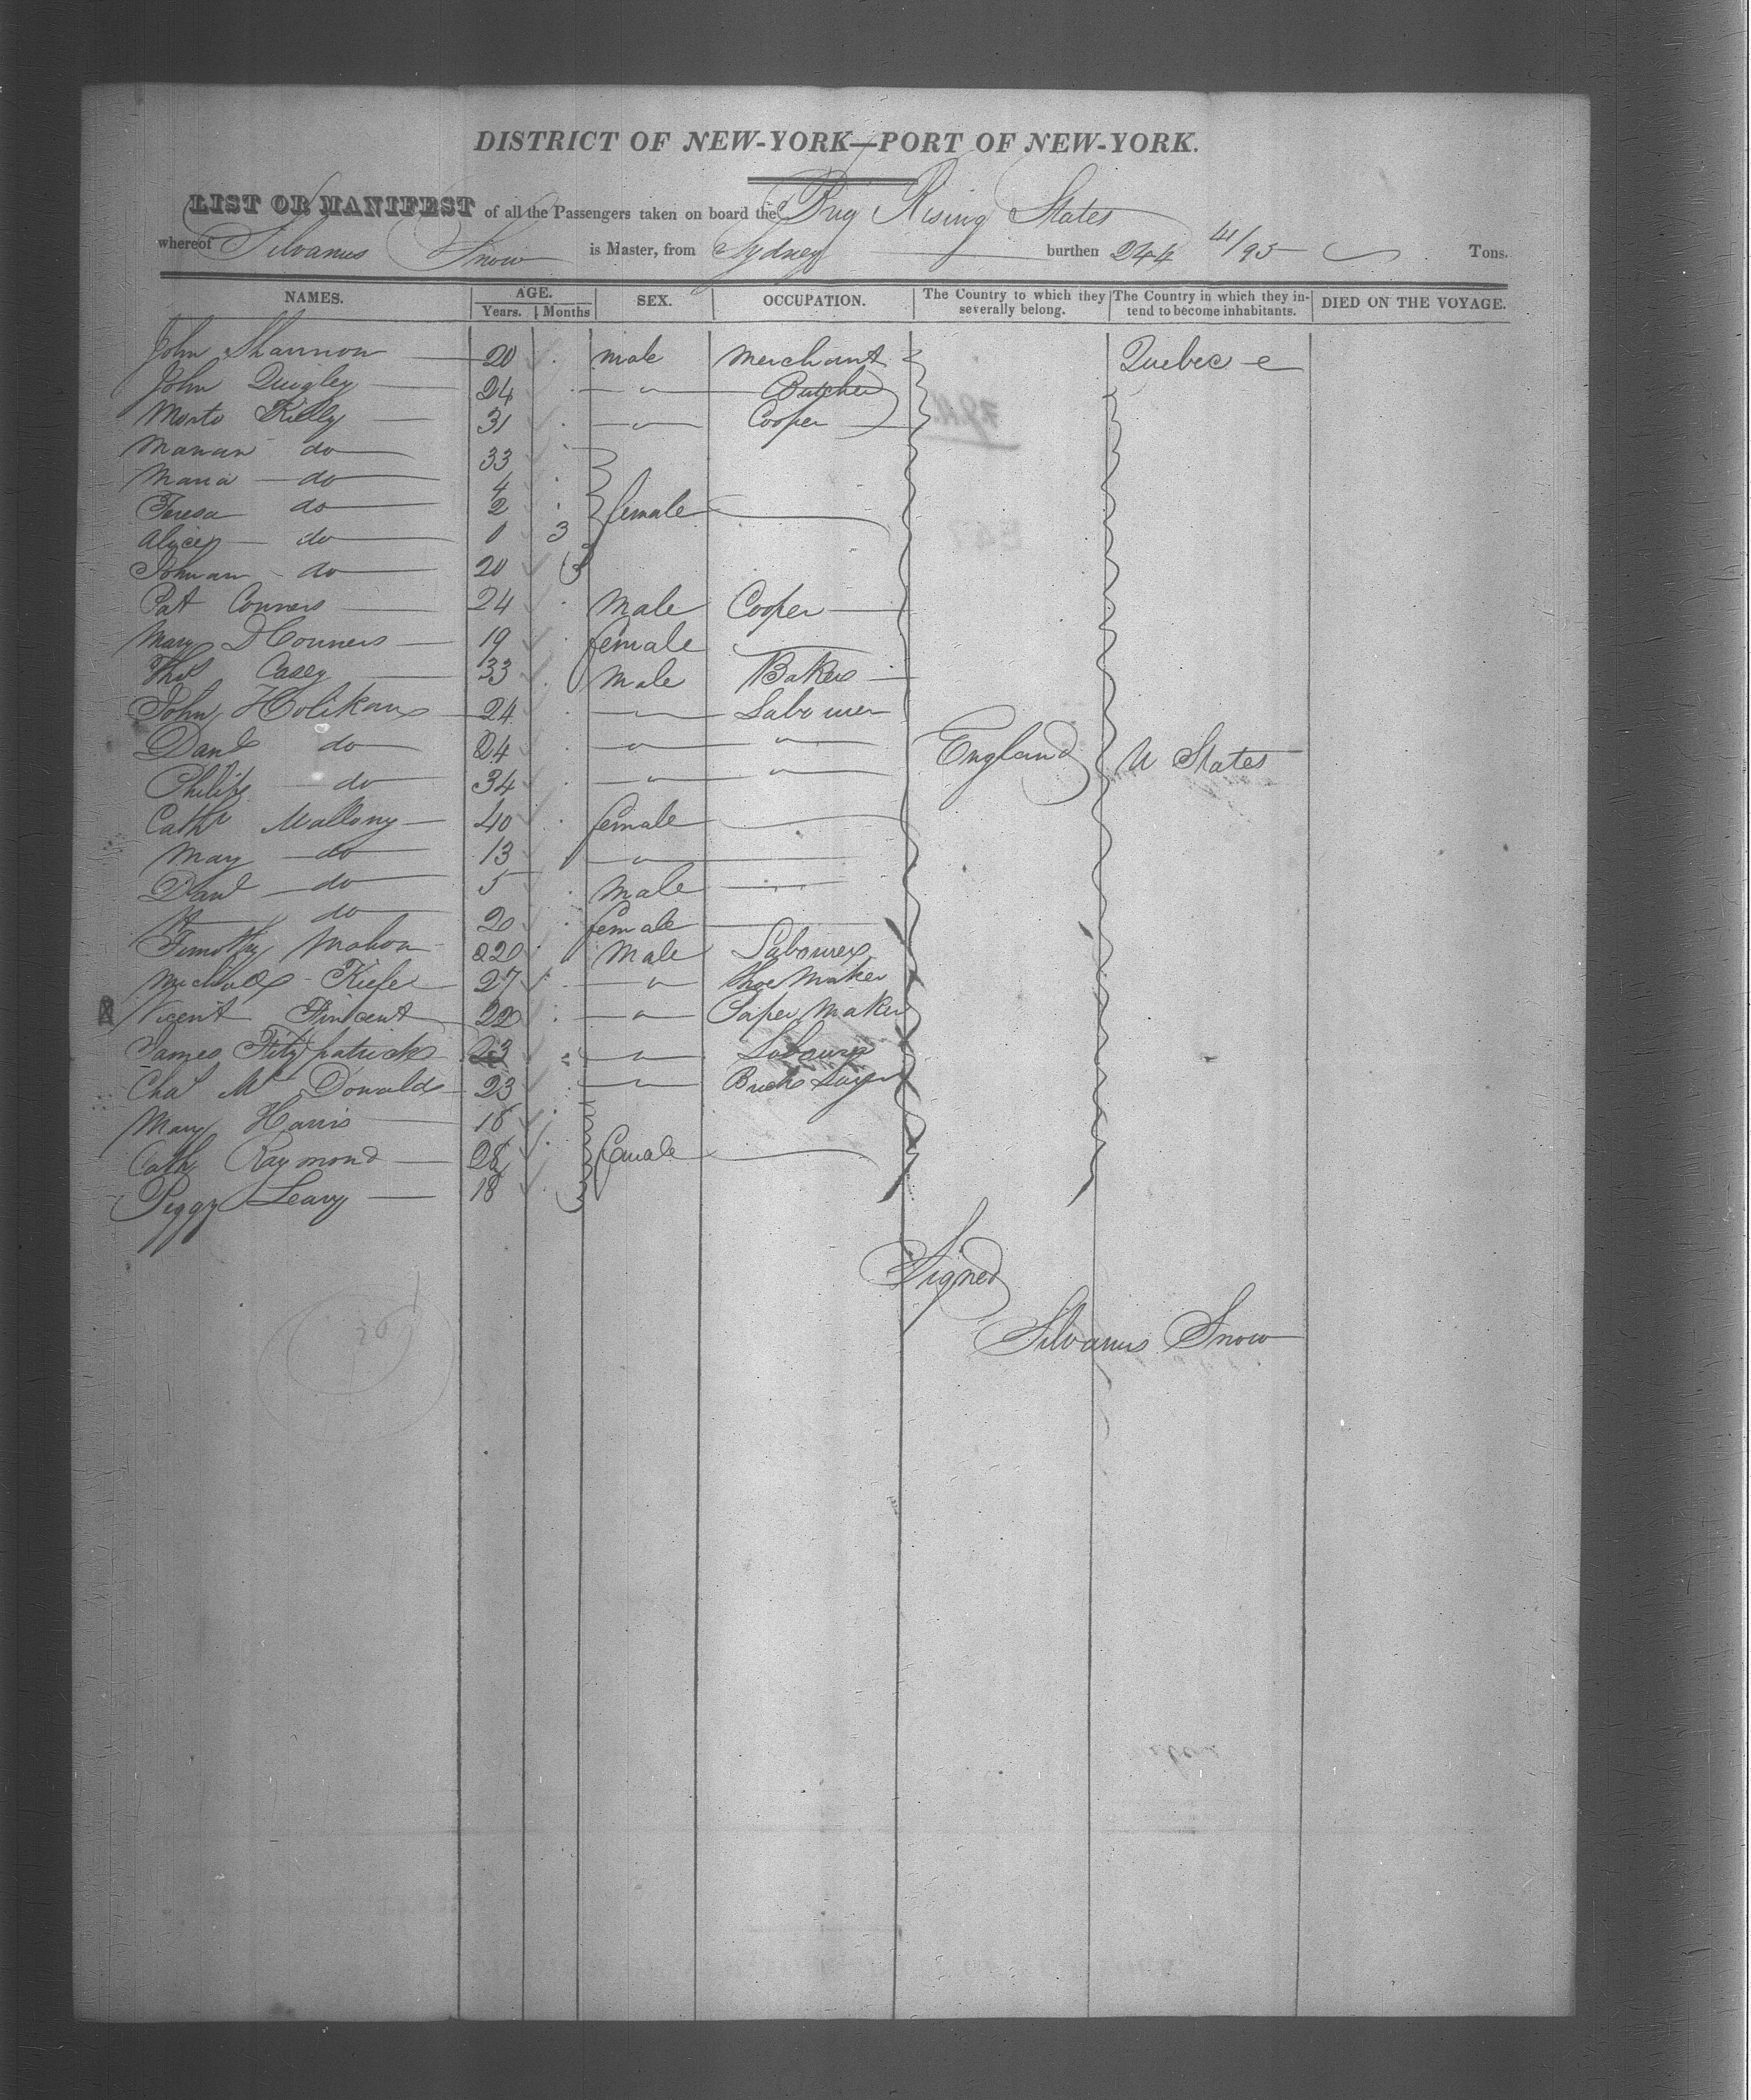 DISTRICT OF NEW-YORK—PORT OF NEW-YORK.
LIST OR MANIFEST of all the Passengers taken on board the Brig Rising States
whereof Silvanus Snow is Master, from Sydney burthen 244 41/95 Tons.
NAMES. AGE. SEX. OCCUPATION. The Country to which they severally belong. The Country in which they intend to become inhabitants. DIED ON THE VOYAGE.
Years. Months
John Shannon 20 male Merchant Quebec
John Quigley 24 " Butcher
Morto Kielly 31 " Cooper
Marian do 33
Maria do 4
Teresa do 2 female
Alice do 0 3
Johanan do 20
Pat Conners 24 Male Cooper
Mary DConners 19 female
Thos Casey 33 Male Baker
John Holikan 24 " Labourer
Danl do 24 " " England U States
Philip do 34 " "
Cath Mallony 40 female
Mary do 13 "
Danl do 5 Male
do 20 female
Timothy Mahon 20 Male Labourer
Michael Kiefe 27 " Shoe Maker
Vicent Finicent 22 " Paper Maker
James Fitzpatrick 23 " Labourer
Chas Mc Donald 23 " Brick Layer
Mary Harris 18
Cath Raymond 28 female
Peggy Leary 18
Signed
Silvanus Snow